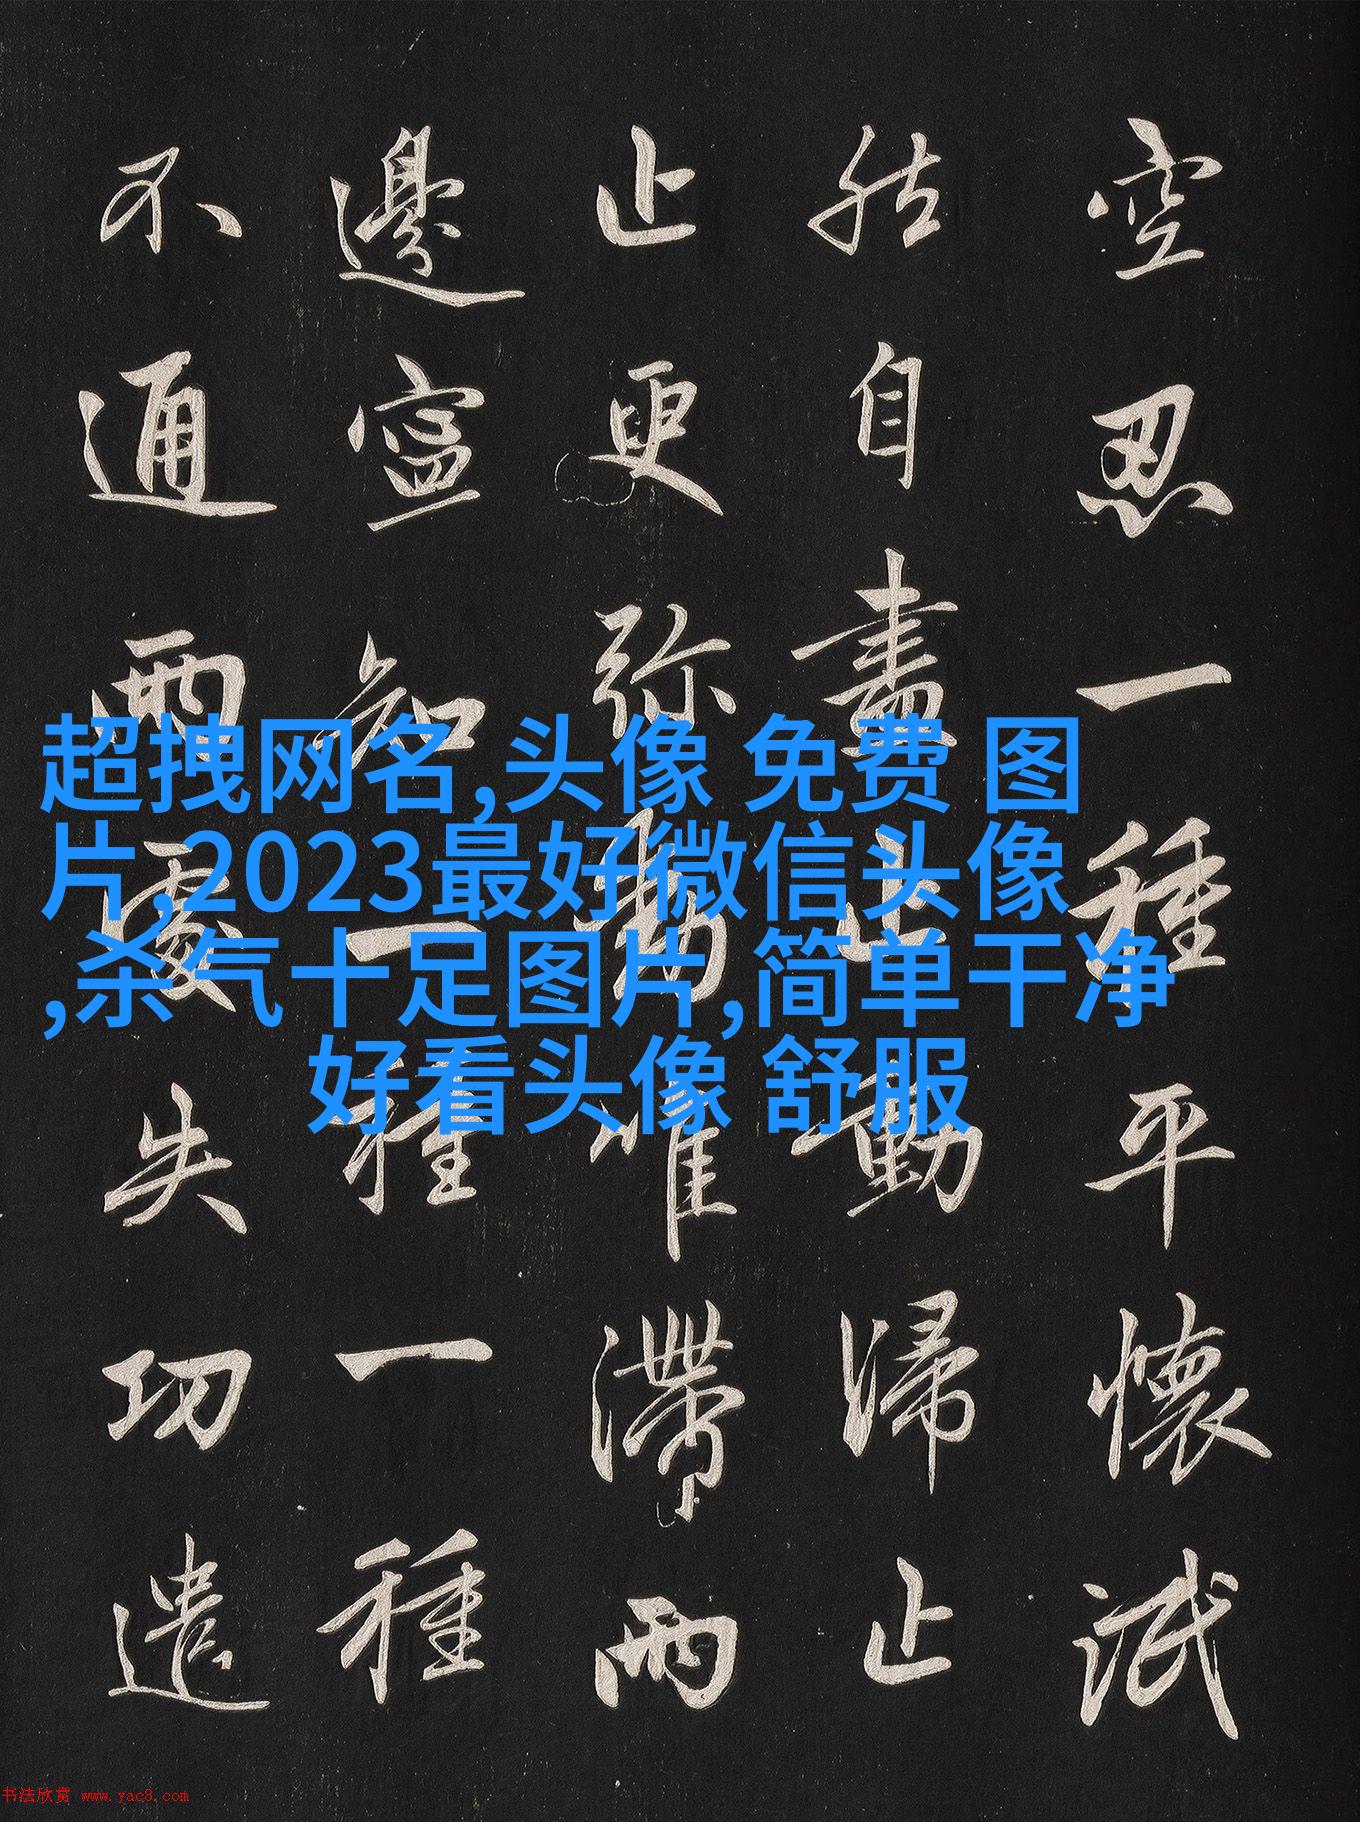 空忍一種平懷泯
然自盡止動歸止
止更弥動唯滯兩
邊寍知一種一種
不通兩處失功遣
超拽网名,头像 免费 图
片,2023最好微信头像
,杀气十足图片,简单干净
好看头像 舒服
书法欣赏 www.yac8.com